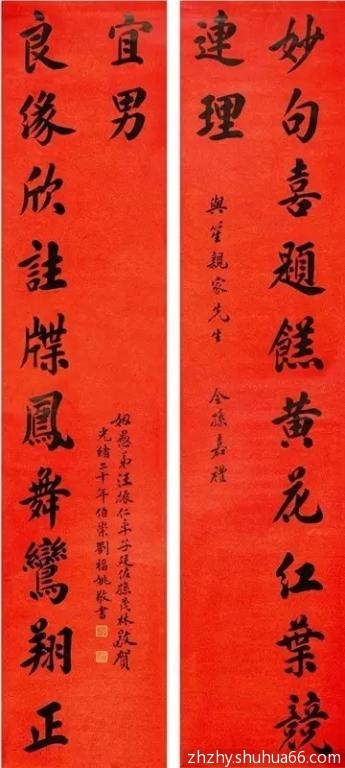 妙句喜題餻黃花紅葉競
連理
與笙親家先生 令孫嘉禮
良緣欣註牒鳳舞鸞翔正
宜男
姻愚弟汪振仁率子廷佐孫茂林敬賀
光緒二十年伯崇劉福姚敬書
zhzhy.shuhua66.com